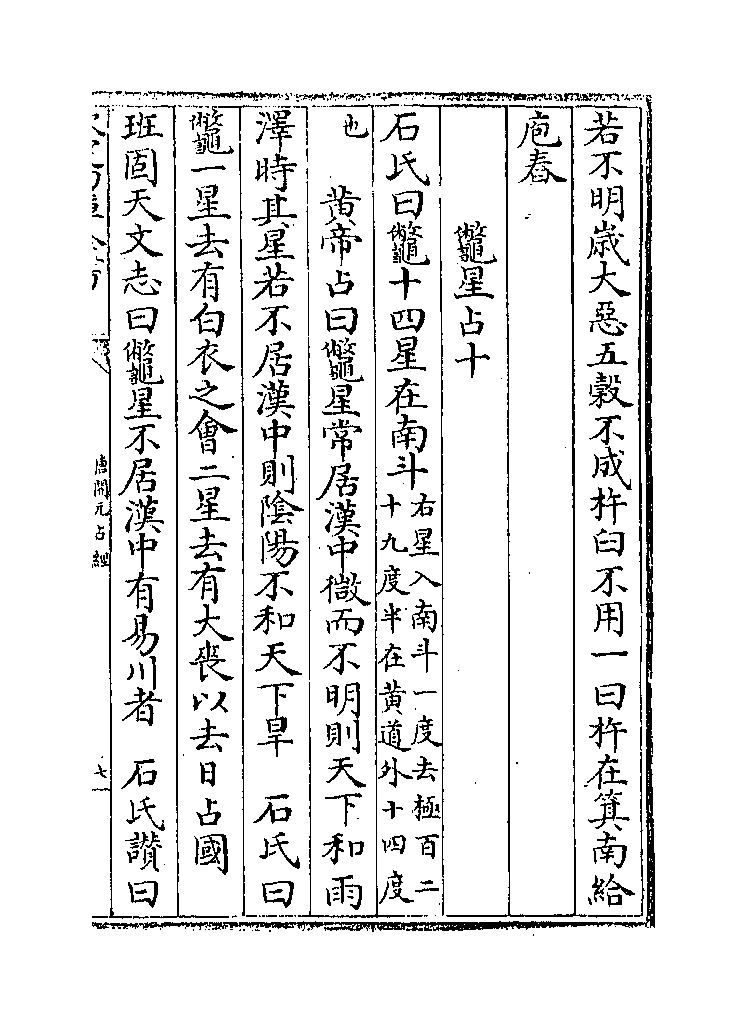 若不明歳大惡五榖不成杵臼不用一曰杵在箕南給
庖舂
鼈星占十
石氏曰鼈十四星在南斗右星入南斗一度去極百二十九度半在黄道外十四度
也　黄帝占曰鼈星常居漢中微而不明則天下和雨
澤時其星若不居漢中則陰陽不和天下旱　石氏曰
鼈一星去有白衣之會二星去有大喪以去日占國
班固天文志曰鼈星不居漢中有易川者　石氏讃曰
唐開元占經